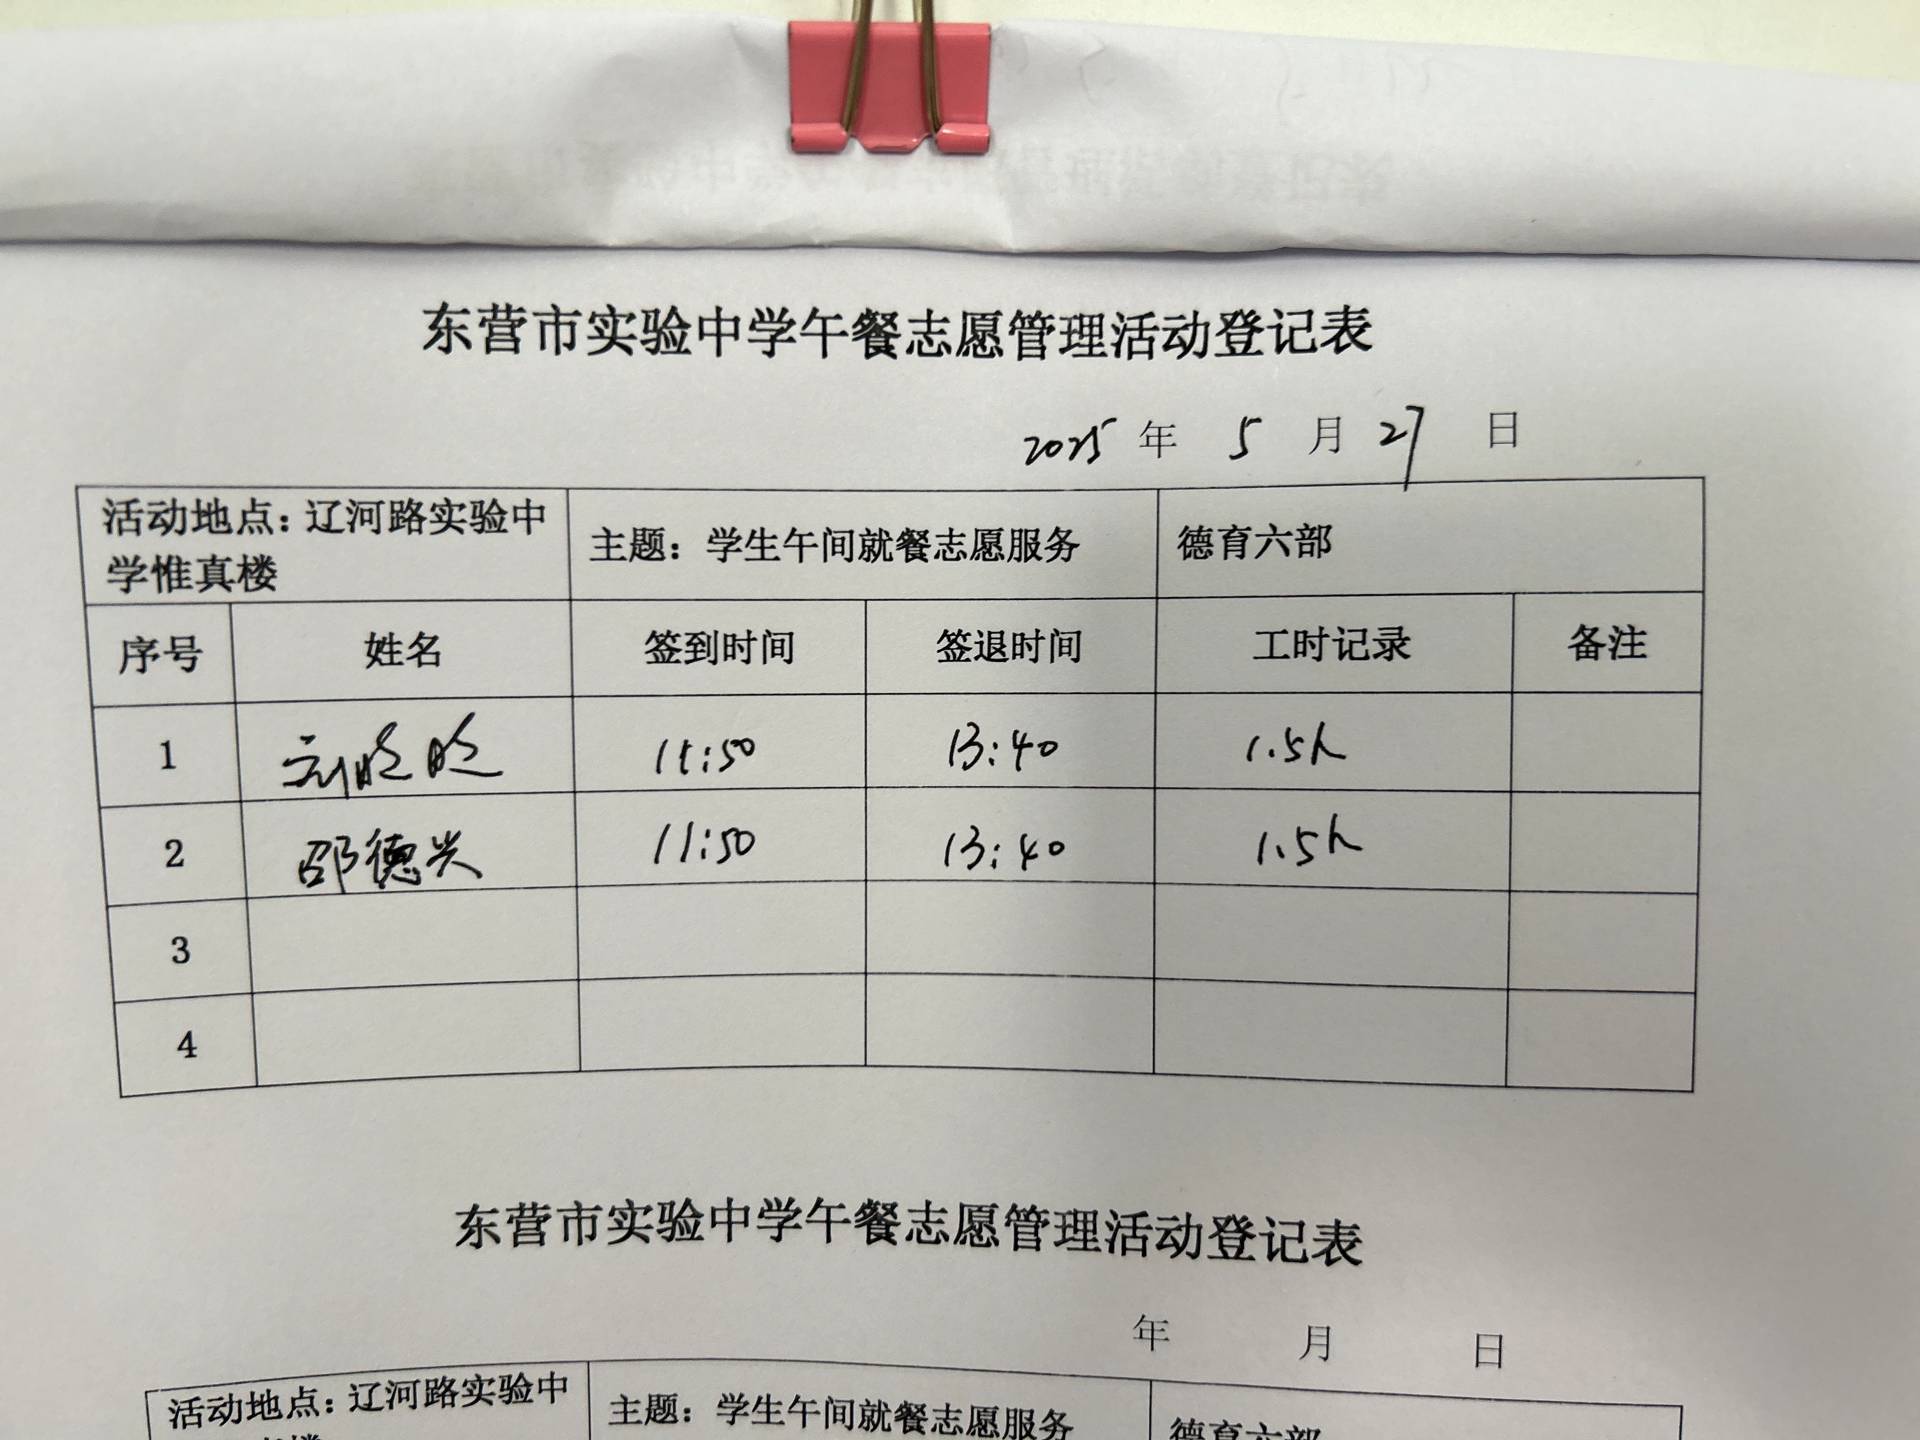 东营市实验中学午餐志愿管理活动登记表
2025 年 5 月 27 日
活动地点：辽河路实验中学惟真楼 主题：学生午间就餐志愿服务 德育六部
序号 姓名 签到时间 签退时间 工时记录 备注
1 刘晓晓 11:50 13:40 1.5h
2 邵德兴 11:50 13:40 1.5h
3
4
东营市实验中学午餐志愿管理活动登记表
年 月 日
活动地点：辽河路实验中 主题：学生午间就餐志愿服务 德育六部